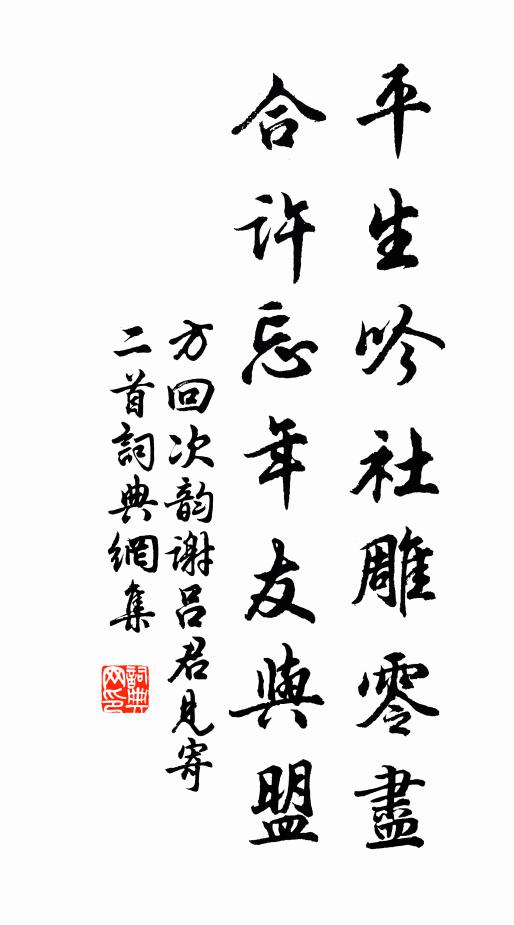 平生吟社雕零盡
合许忘年友與盟
方回次韵谢吕君見寄
二首詞典網集
詞典
网印